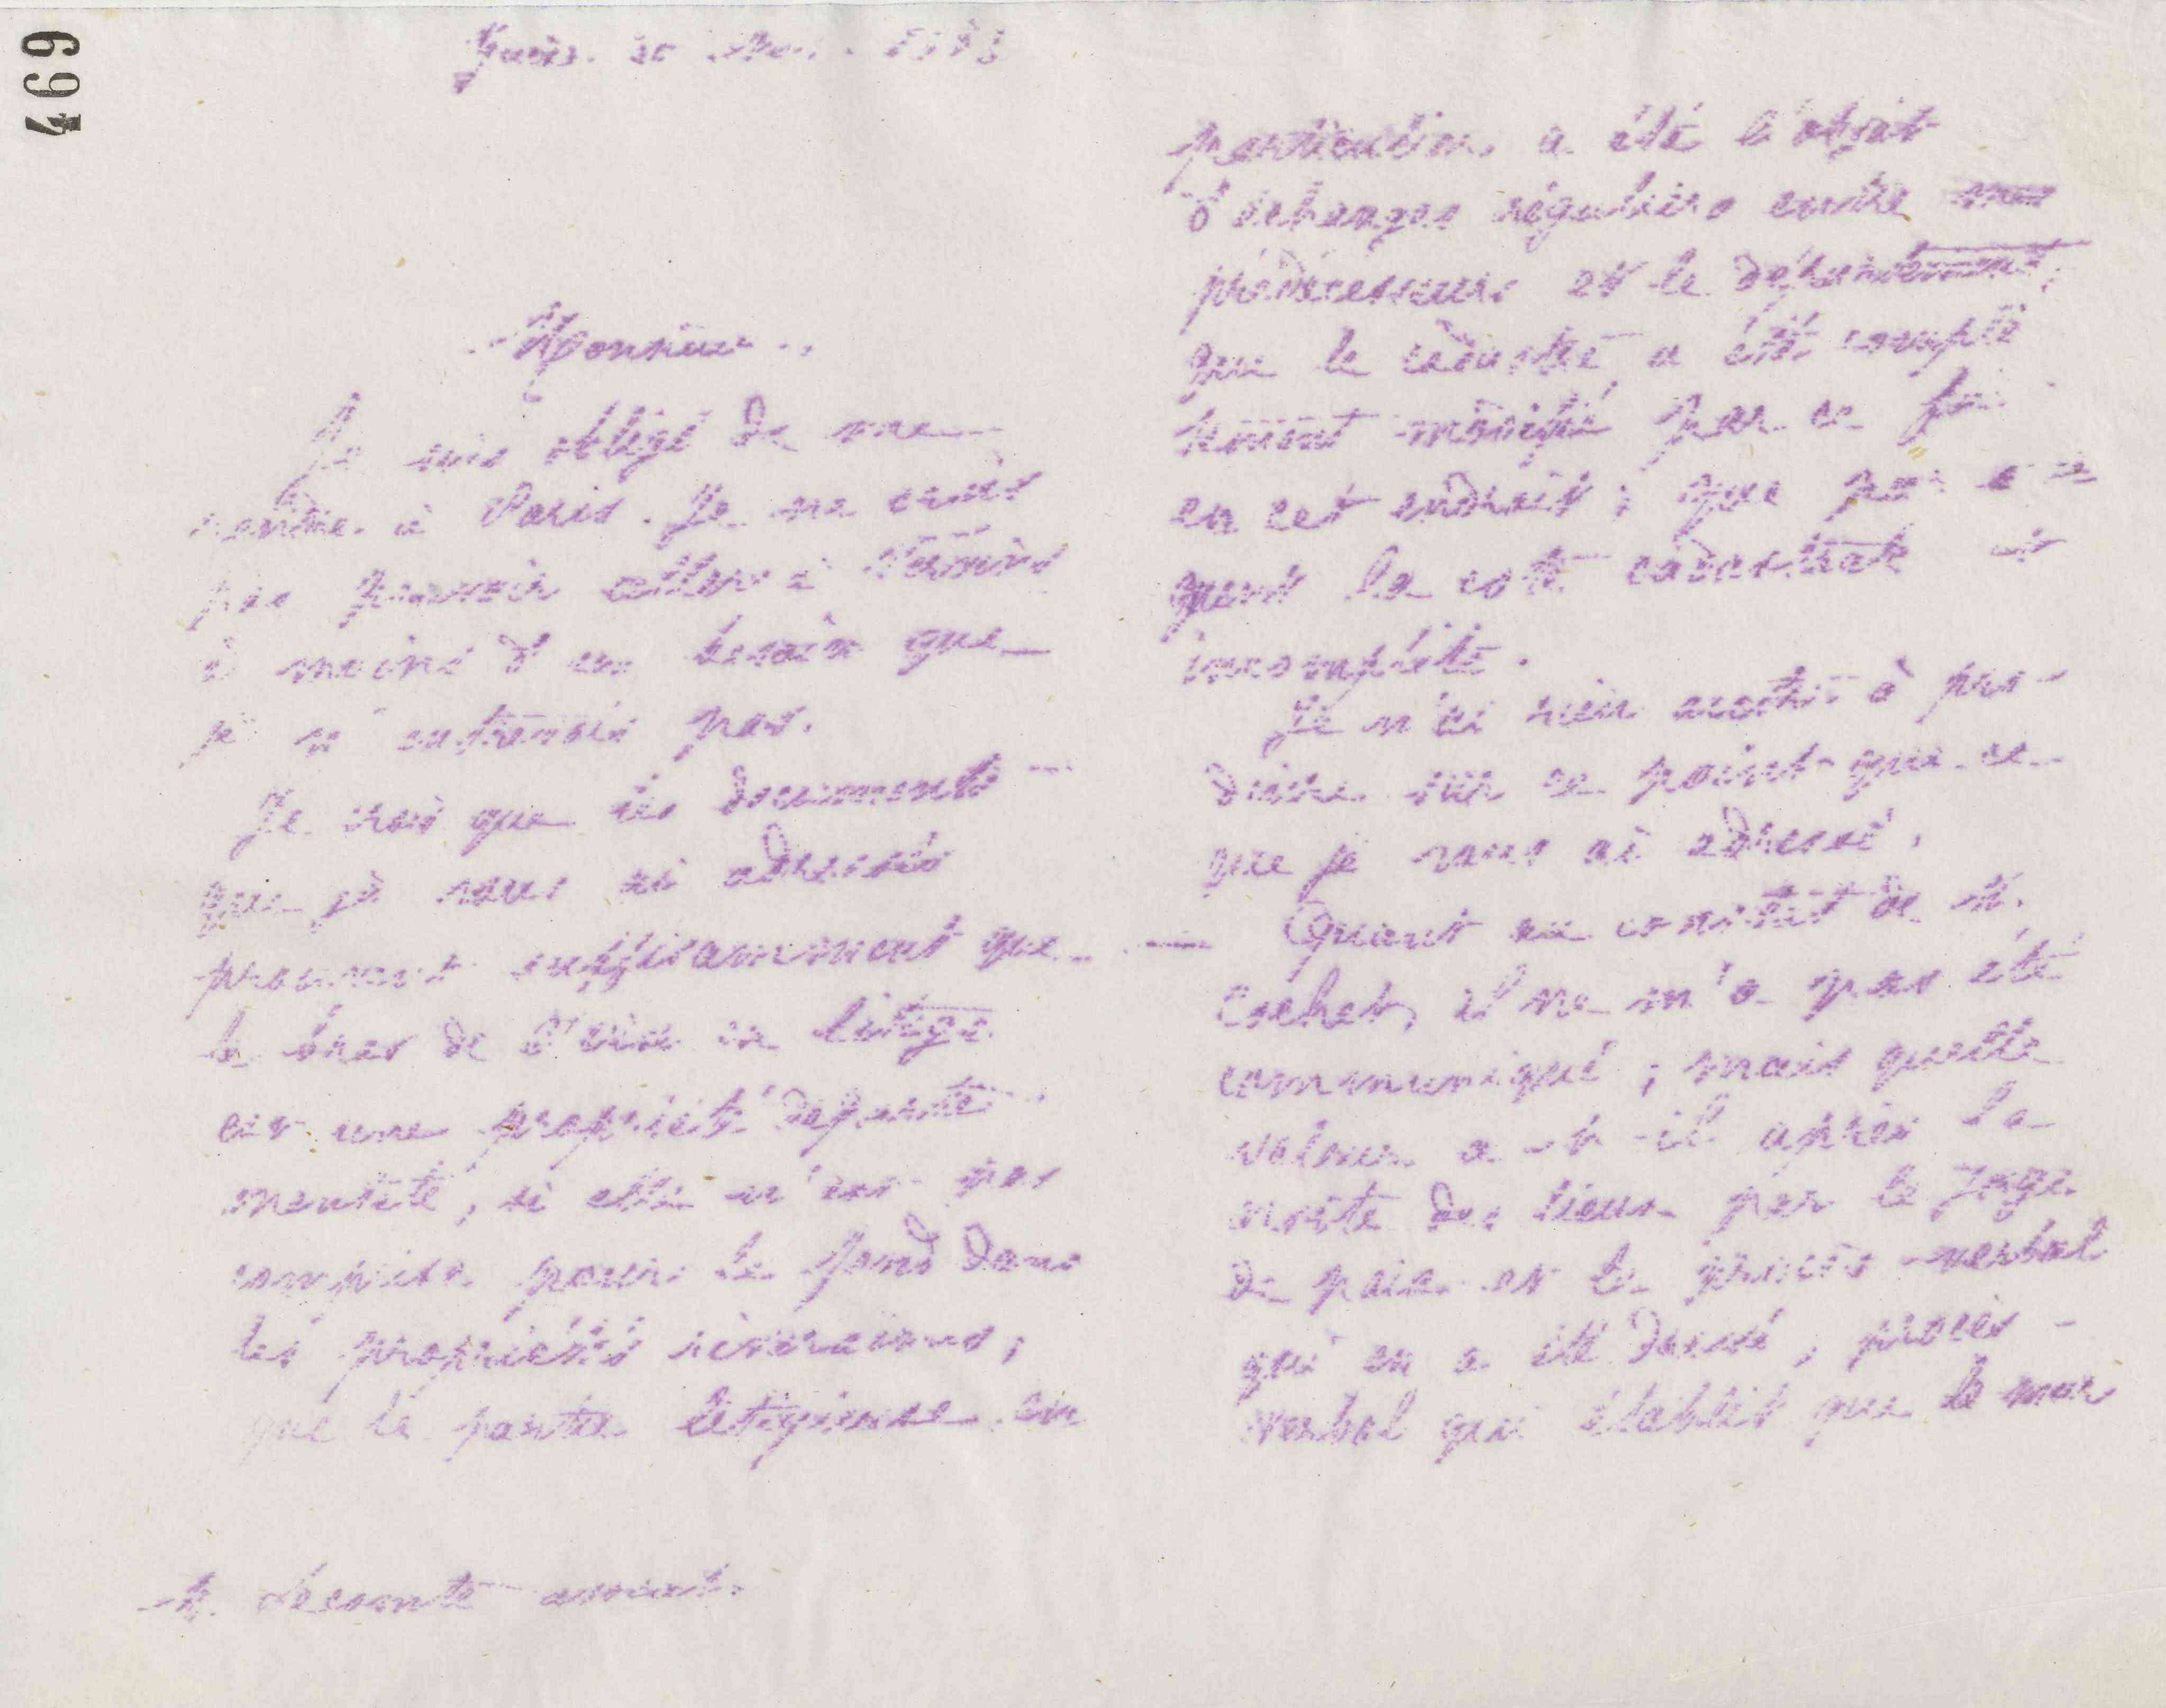 469
Guise. 20 1883
Monsieur,
Je suis obligé de me
rendre à Paris. Je ne crois
pas pouvoir aller à Vervins
à moins d'un besoin que
je n'entrevois pas.
Je crois que les documents
que je vous ai adressés
prouvent suffisamment que
le bras de l'Oise en litige
est une propriété départe
mentale, si elle n'est pas
comprise pour le fond dans
les propriétés riveraines;
que la partie litigieuse en
M. Lecomte avocat.
particulier a été l'objet
d'échanges réguliers entre mes
prédécesseurs et le département;
que le cadastre a été complè
tement modifié par ce fait
en cet endroit; que par consé
quent la cote cadastrale est
incomplète.
Je n'ai rien autre à pro-
duire sur ce point que ce
que je vous ai adressé.
Quant au constat de M.
Cochet, il ne m'a pas été
communiqué; mais quelle
valeur a-t-il après la
visite des lieux par le Juge
de paix et le procès-verbal
qui en a été dressé, procès-
verbal qui établit que le mur